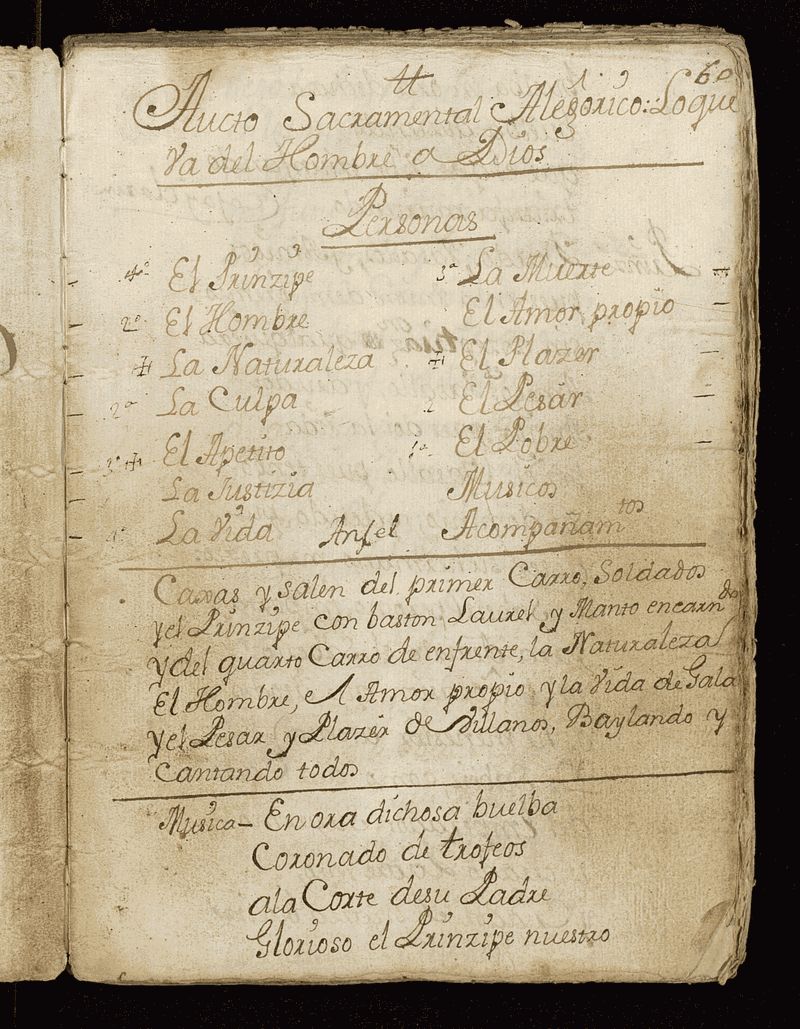 60
Aucto Sacramental Alegorico: Loque
va del Hombre a Dios
Personas
4º El Prinzipe
3ª La Muerte
2º El Hombre
El Amor propio
La Naturaleza
El Plazer
2ª La Culpa
El Pesar
3º El Apetito
1º El Pobre
La Justizia
Musicos
La Vida
Anjel
Acompañamtos
Caxas y salen del primer Carro, Soldados
yel Prinzipe con baston Laurel y Manto encarndo
ydel quarto Carro de enfrente, la Naturaleza
El Hombre, el Amor propio, yla Vida de Gala
yel Pesar y Plazer de Villanos, Baylando y
Cantando todos
Musica – En ora dichosa buelba
Coronado de trofeos
ala Corte desu Padre
Glorioso el Prinzipe nuestro